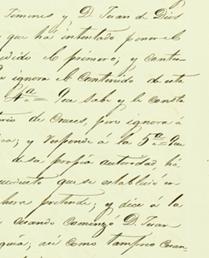 Jimenes y D. Juan de Dios
que há intentado poner el
pedido el primero, y contes
ignora el contenido de esta
4ª = Que sabe y le consta
de Cruces, pero ignora á
y responde a la 5ª = Que
de su propia autoridad há
que se estableció en
pretende; y dice á la
cuando comenzó D. Juan
así como tampoco